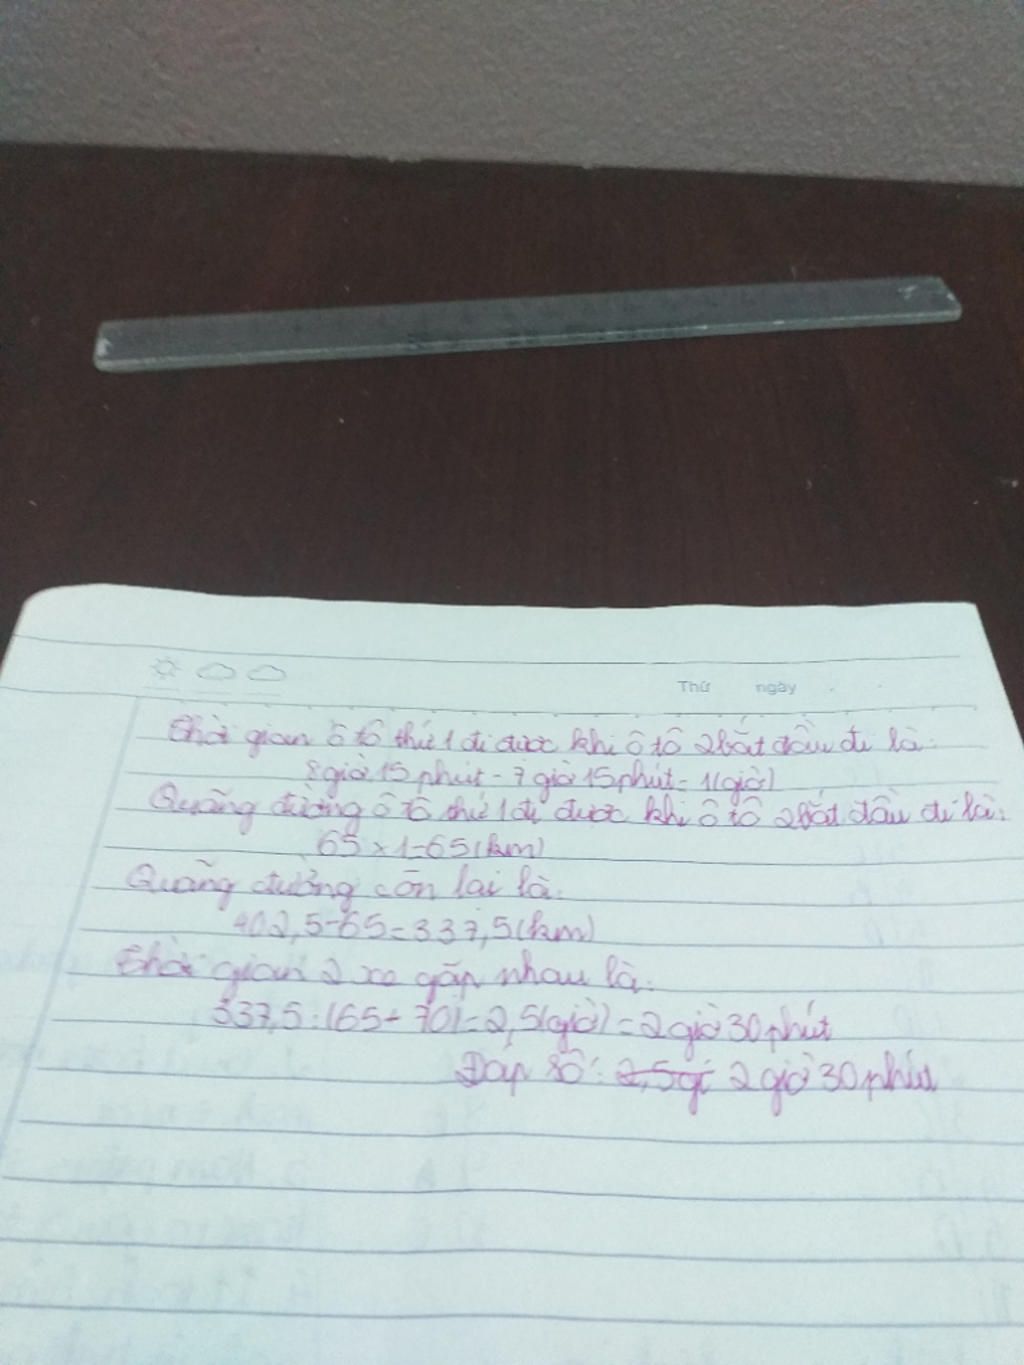 Thứ ngày
Thời gian ô tô thứ 1 đi được khi ô tô 2 bắt đầu đi là:
8 giờ 15 phút - 7 giờ 15 phút = 1 (giờ)
Quãng đường ô tô thứ 1 đi được khi ô tô 2 bắt đầu đi là:
65 x 1 = 65 (km)
Quãng đường còn lại là:
402,5 - 65 = 337,5 (km)
Thời gian 2 xe gặp nhau là:
337,5 : (65 + 70) = 2,5 (giờ) = 2 giờ 30 phút
Đáp số: 2,5 gi 2 giờ 30 phút